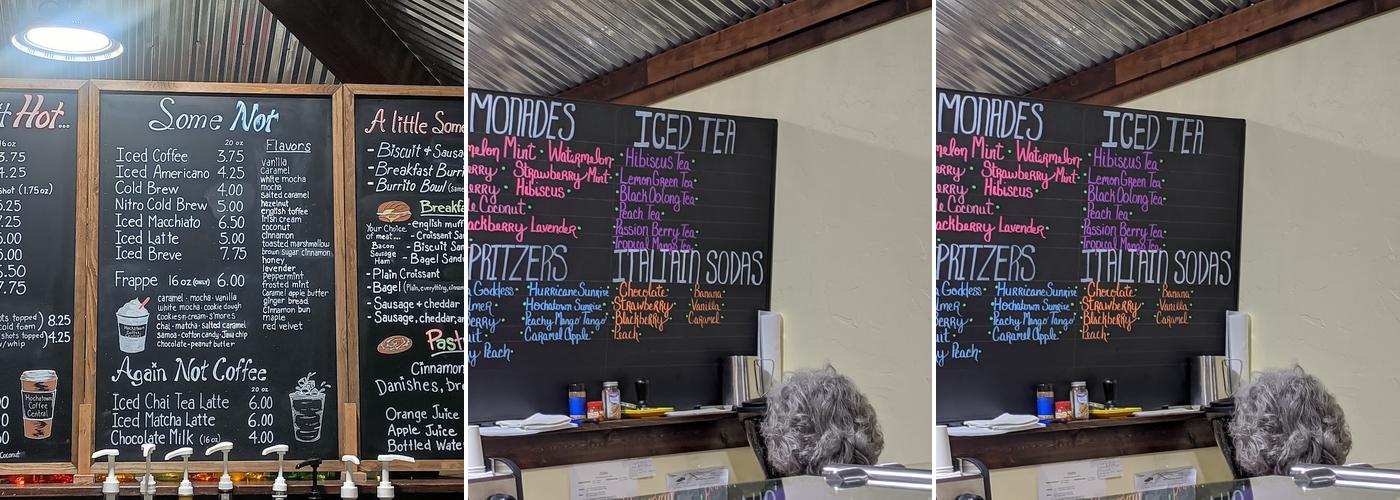 Hot...
16oz
3.75
4.25
shot (1.75oz)
5.25
7.25
5.00
5.00
5.50
7.75
8.25
4.25
w/whip
Hochatown
Coffee
Central
Some Not
20 oz
Iced Coffee 3.75
Iced Americano 4.25
Cold Brew 4.00
Nitro Cold Brew 5.00
Iced Macchiato 6.50
Iced Latte 5.00
Iced Breve 7.75
Frappe 16oz (ONLY) 6.00
caramel · mocha · vanilla
white mocha · cookie dough
cookies·n·cream · s'mores
chai · matcha · salted caramel
samoa · cotton candy · Java chip
chocolate-peanut butter
Flavors
vanilla
Caramel
white mocha
mocha
salted caramel
hazelnut
english toffee
irish cream
coconut
cinnamon
toasted marshmallow
brown sugar cinnamon
honey
lavender
Peppermint
frosted mint
Caramel apple butter
ginger bread
Cinnamon bun
maple
red velvet
Again Not Coffee
20 oz
Iced Chai Tea Latte 6.00
Iced Matcha Latte 6.00
Chocolate Milk (16oz) 4.00
A little Some
- Biscuit + Sausa
- Breakfast Burri
- Burrito Bowl
Breakfa
Your Choice
of meat...
Bacon
Sausage
Ham
- english muff
- Croissant Sa
- Biscuit San
- Bagel Sand
- Plain Croissant
- Bagel (Plain, everything, cinnam
- Sausage + cheddar
- Sausage, cheddar, a
Past
Cinnamon
Danishes, br
Orange Juice
Apple Juice
Bottled Wate
MONADES
melon Mint · Watermelon
erry · Strawberry Mint
erry · Hibiscus
e Coconut
ackberry Lavender
ICED TEA
Hibiscus Tea
Lemon Green Tea
Black Oolong Tea
Peach Tea
Passion Berry Tea
Tropical Mango Tea
PRITZERS
Goddess · Hurricane Sunrise
lmer · Hochatown Sunrise
erry · Peachy Mango Tango
uit · Caramel Apple
y Peach
ITALIAN SODAS
Chocolate · Banana
Strawberry · Vanilla
Blackberry · Caramel
Peach
MONADES
melon Mint · Watermelon
erry · Strawberry Mint
erry · Hibiscus
e Coconut
ackberry Lavender
ICED TEA
Hibiscus Tea
Lemon Green Tea
Black Oolong Tea
Peach Tea
Passion Berry Tea
Tropical Mango Tea
PRITZERS
Goddess · Hurricane Sunrise
lmer · Hochatown Sunrise
erry · Peachy Mango Tango
uit · Caramel Apple
y Peach
ITALIAN SODAS
Chocolate · Banana
Strawberry · Vanilla
Blackberry · Caramel
Peach